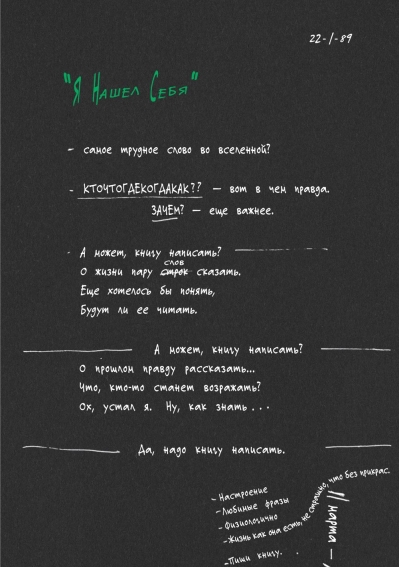 22-1-89
"Я Нашел Себя"
- самое трудное слово во вселенной?
- КТОЧТОГДЕКОГДАКАК?? — вот в чем правда.
ЗАЧЕМ? — еще важнее.
- А может, книгу написать?
слов
О жизни пару строк сказать.
Еще хотелось бы понять,
Будут ли ее читать.
А может, книгу написать?
О прошлом правду рассказать...
Что, кто-то станет возражать?
Ох, устал я. Ну, как знать...
Да, надо книгу написать.
- Настроение
- Любимые фразы
- Физиологично
- Жизнь как она есть, не страшно, что без прикрас.
- Пиши книгу..
11 марта —